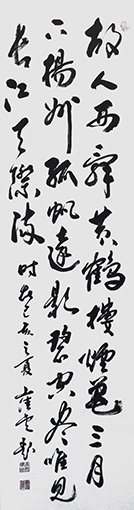 故人西辭黄鶴樓煙花三月
下揚州孤帆遠影碧空尽唯見
長江天際流 時在己亥之夏